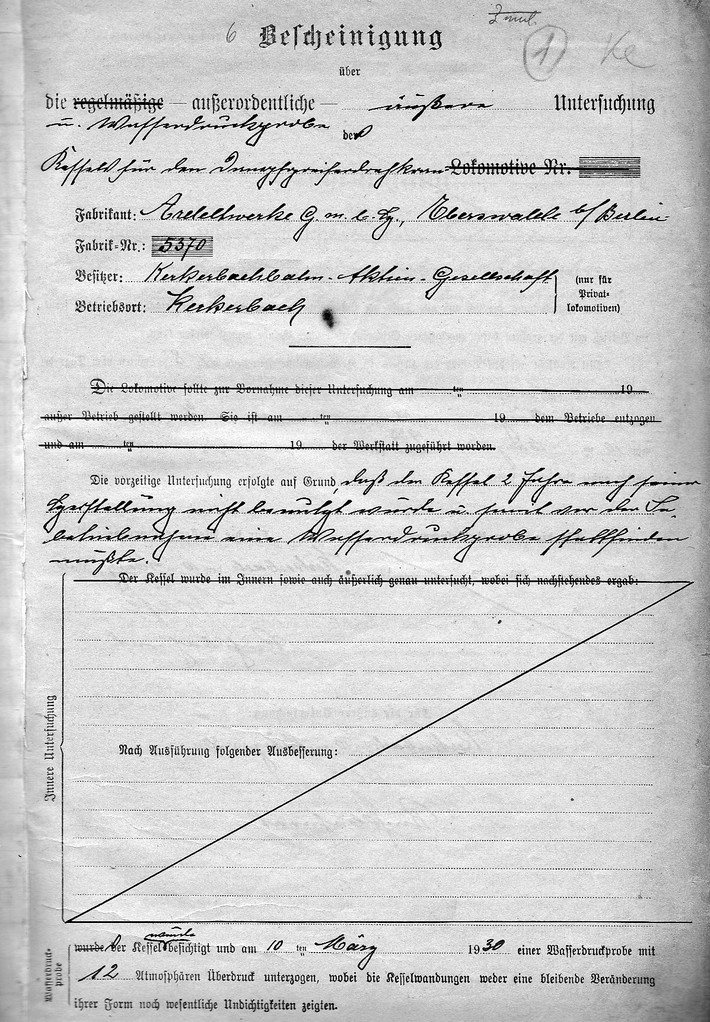 6
1
Ke
Bescheinigung
über
die regelmäßige — außerordentliche — äußere Untersuchung
u. Wasserdruckprobe des
Kessels für den Dampfgreiferdrehkran Lokomotive Nr.
Fabrikant: Ardeltwerke G.m.b.H., Eberswalde b/Berlin
Fabrik-Nr.: 5370
Besitzer: Kerkerbachbahn-Aktien-Gesellschaft
(nur für
Privat-
lokomotiven)
Betriebsort: Kerkerbach
Die Lokomotive sollte zur Vornahme dieser Untersuchung am ten 19
außer Betrieb gestellt werden. Sie ist am ten 19 dem Betriebe entzogen
und am ten 19 der Werkstatt zugeführt worden.
Die vorzeitige Untersuchung erfolgte auf Grund, daß der Kessel 2 Jahre nach seiner
Herstellung nicht benutzt wurde u. somit vor der In-
betriebnahme eine Wasserdruckprobe stattfinden
mußte.
Innere Untersuchung
Der Kessel wurde im Innern sowie auch äußerlich genau untersucht, wobei sich nachstehendes ergab:
Nach Ausführung folgender Ausbesserung:
Wasserdruck-
probe
wurde
wurde der Kessel besichtigt und am 10 ten März 1930 einer Wasserdruckprobe mit
12 Atmosphären Überdruck unterzogen, wobei die Kesselwandungen weder eine bleibende Veränderung
ihrer Form noch wesentliche Undichtigkeiten zeigten.